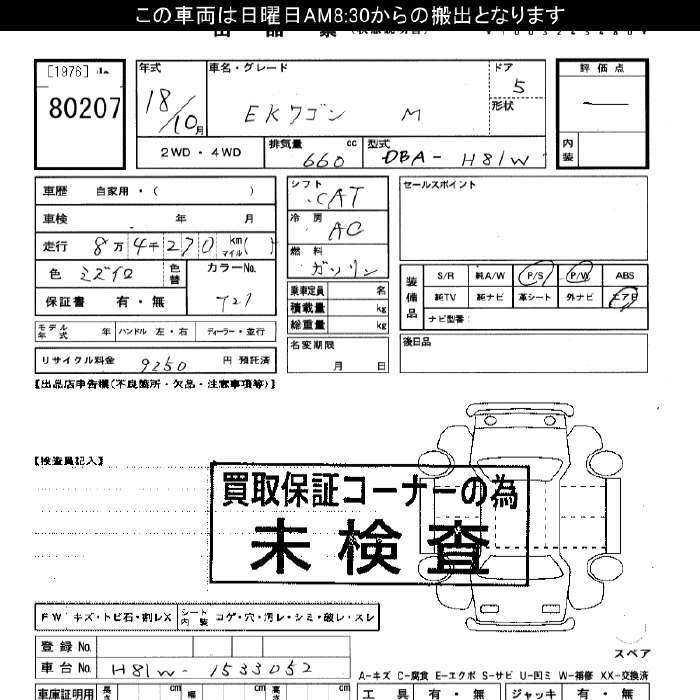 この車両は日曜日AM8:30からの搬出となります
出品票
[1976]
80207
年式
18/10月
車名・グレード
EKワゴン M
ドア
5
形状
評価点
内装
2WD・4WD
排気量 660 cc
型式 DBA-H81W
車歴 自家用・( )
車検 年 月
走行 8万4千270km マイル( )
色 ミズイロ
色替
カラーNo.
T27
保証書 有・無
シフト
CAT
冷房
AC
燃料
ガソリン
乗車定員 名
積載量 kg
総重量 kg
セールスポイント
装備品
S/R 純A/W P/S P/W ABS
純TV 純ナビ 革シート 外ナビ エアB
ナビ型番:
モデル年式 年 ハンドル 左・右 ディーラー・並行
リサイクル料金 9250 円 預託済
名変期限
月 日
後日品
【出品店申告欄(不良箇所・欠品・注意事項等)】
【検査員記入】
買取保証コーナーの為
未検査
FW キズ・トビ石・割レX
シート内装 コゲ・穴・汚レ・シミ・破レ・スレ
登録No.
車台No. H81W-1533052
スペア
A-キズ C-腐食 E-エクボ S-サビ U-凹ミ W-補修 XX-交換済
車庫証明用 長さ cm 幅 cm 高さ cm
工具 有・無 ジャッキ 有・無